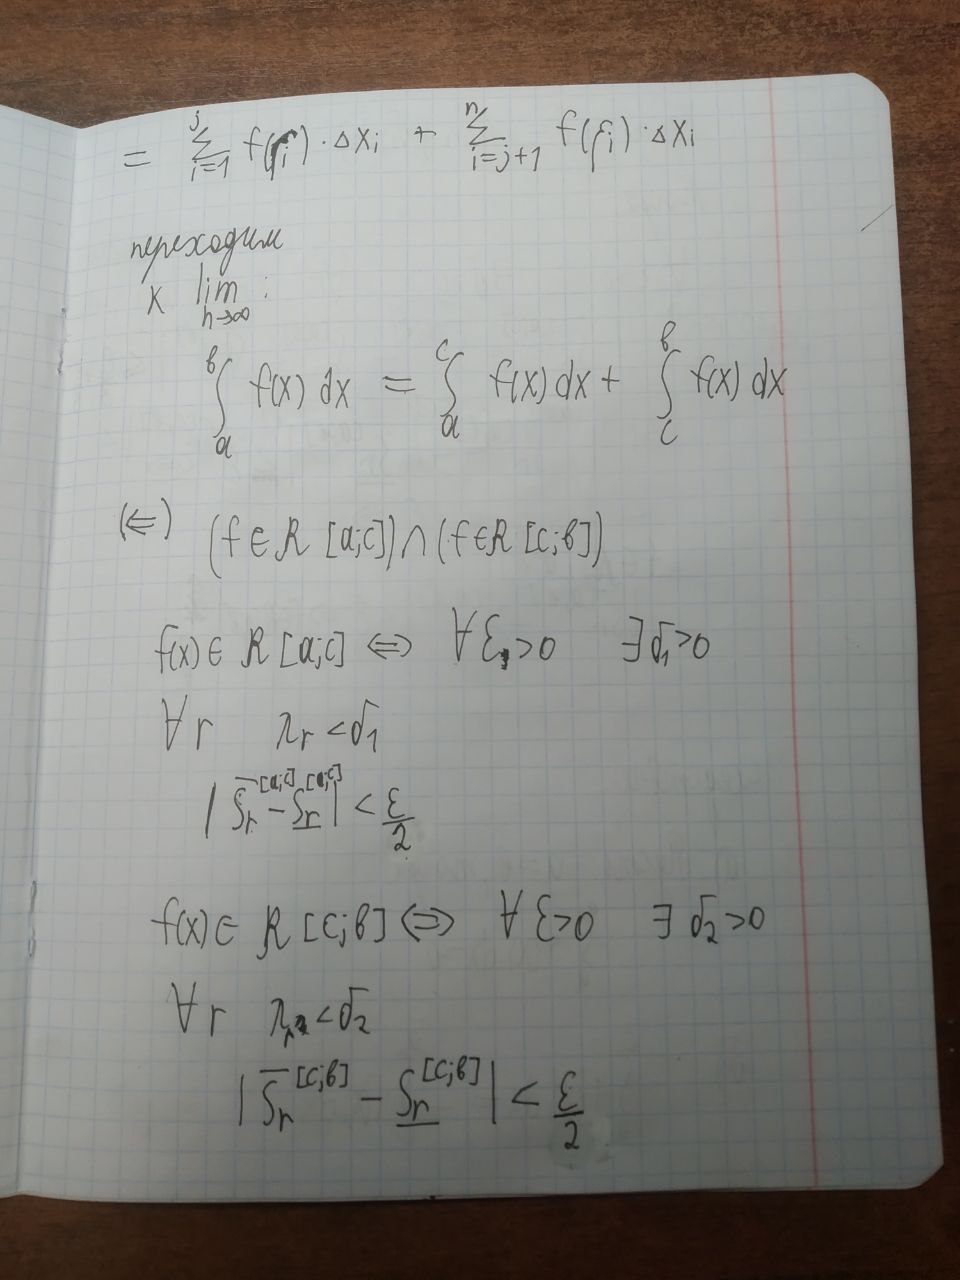 = \sum_{i=1}^{j} f(ξ_i) · Δx_i + \sum_{i=j+1}^{n} f(ξ_i) · Δx_i
переходим
к lim_{n→∞} :
\int_a^b f(x) dx = \int_a^c f(x) dx + \int_c^b f(x) dx
(⇐) (f ∈ R [a;c]) ∩ (f ∈ R [c;b])
f(x) ∈ R [a;c] ⇔ ∀ ε > 0 ∃ δ_1 > 0
∀ r λ_r < δ_1
| \overline{S_r}^{[a;c]} - \underline{S_r}^{[a;c]} | < \frac{ε}{2}
f(x) ∈ R [c;b] ⇔ ∀ ε > 0 ∃ δ_2 > 0
∀ r λ_r < δ_2
| \overline{S_r}^{[c;b]} - \underline{S_r}^{[c;b]} | < \frac{ε}{2}